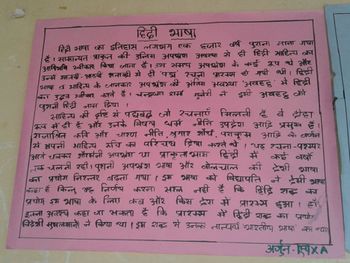 हिंदी भाषा
हिंदी भाषा का इतिहास लगभग एक हजार वर्ष पुराना माना गया
है। सामान्यतः प्राकृत की अंतिम अपभ्रंश अवस्था से ही हिंदी साहित्य का
आविर्भाव स्वीकार किया जाता है। उस समय अपभ्रंश के कई रूप थे और
उनमें सातवीं-आठवीं शताब्दी से ही पद्य रचना प्रारम्भ हो गयी थी। हिंदी
भाषा व साहित्य के जानकार अपभ्रंश की अंतिम अवस्था अवहट्ठ से हिंदी
का उद्भव स्वीकार करते हैं। चन्द्रधर शर्मा गुलेरी ने इसी अवहट्ठ को
पुरानी हिंदी नाम दिया।
साहित्य की दृष्टि से पद्यबद्ध जो रचनाएँ मिलती हैं वे दोहा
रूप में ही हैं और उनके विषय धर्म नीति उपदेश आदि प्रमुख हैं।
राजाश्रित कवि और चारण नीति शृंगार शौर्य, पराक्रम आदि के वर्णन
से अपनी साहित्य रुचि का परिचय दिया करते थे। यह रचना-परम्परा
आगे चलकर शौरसेनी अपभ्रंश या प्राकृताभास हिंदी में कई वर्षों
तक चलती रही। पुरानी अपभ्रंश भाषा और बोलचाल की देशी भाषा
का प्रयोग निरन्तर बढ़ता गया। इस भाषा को विद्यापति ने देसी भाषा
कहा है किन्तु यह निर्णय करना सरल नहीं है कि हिंदी शब्द का
प्रयोग इस भाषा के लिए कब और किस देश में प्रारम्भ हुआ। हाँ
इतना अवश्य कहा जा सकता है कि प्रारम्भ में हिंदी शब्द का प्रयोग
विदेशी मुसलमानों ने किया था। इस शब्द से उनका तात्पर्य भारतीय भाषा का था।
अर्जुन X A